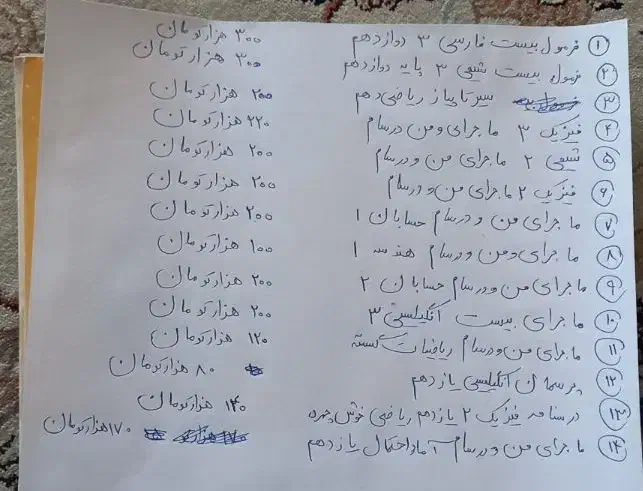 ① فرمول بیست فارسی ۳ دوازدهم ۳۰۰ هزار تومان
② فرمول بیست شیمی ۳ پایه دوازدهم ۳۰۰ هزار تومان
③ سیر تا پیاز ریاضی دهم ۲۵۰ هزار تومان
④ فیزیک ۳ ماجرای من درسام ۲۲۰ هزار تومان
⑤ شیمی ۲ ماجرای من و درسام ۲۰۰ هزار تومان
⑥ فیزیک ۲ ماجرای من و درسام ۲۰۰ هزار تومان
⑦ ماجرای من و درسام حسابان ۱ ۲۰۰ هزار تومان
⑧ ماجرای من و درسام هندسه ۱ ۱۰۰ هزار تومان
⑨ ماجرای من و درسام حسابان ۲ ۲۰۰ هزار تومان
⑩ ماجرای بیست انگلیسی ۳ ۲۰۰ هزار تومان
⑪ ماجرای من و درسام ریاضیات گسسته ۱۲۰ هزار تومان
⑫ پرسمان انگلیسی یازدهم ۸۰ هزار تومان
⑬ درسنامه فیزیک ۲ یازدهم ریاضی خوش‌چهره ۱۴۰ هزار تومان
⑭ ماجرای من و درسام آمار و احتمال یازدهم ۱۷۰ هزار تومان